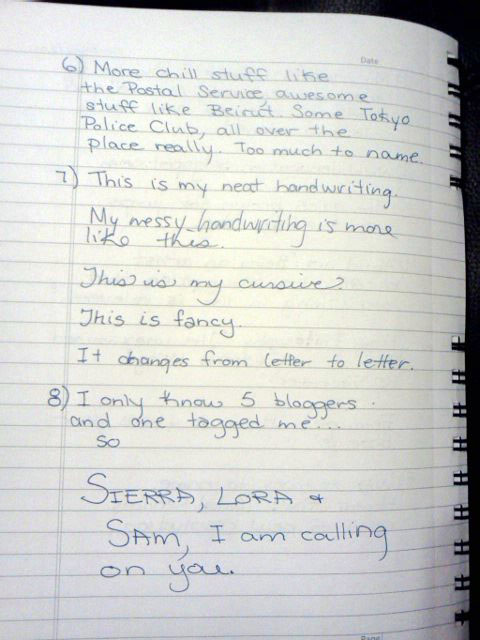 Date
6) More chill stuff like
the Postal Service, awesome
stuff like Beirut. Some Tokyo
Police Club, all over the
place really. Too much to name.
7) This is my neat handwriting.
My messy handwriting is more
like this.
This is my cursive.
This is fancy.
It changes from letter to letter.
8) I only know 5 bloggers
and one tagged me...
so
SIERRA, LORA &
SAM, I am calling
on you.
Page